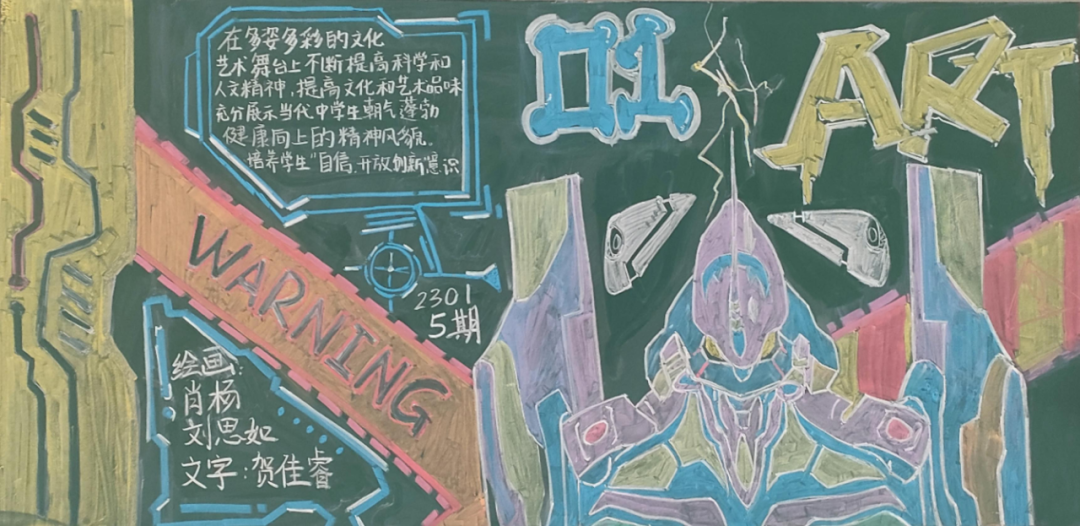 在多姿多彩的文化
艺术舞台上不断提高科学和
人文精神,提高文化和艺术品味
充分展示当代中学生朝气蓬勃
健康向上的精神风貌。
培养学生"自信、开放创新意识
01 ART
WARNING
2301
5期
绘画:
肖杨
刘思如
文字:贺佳睿